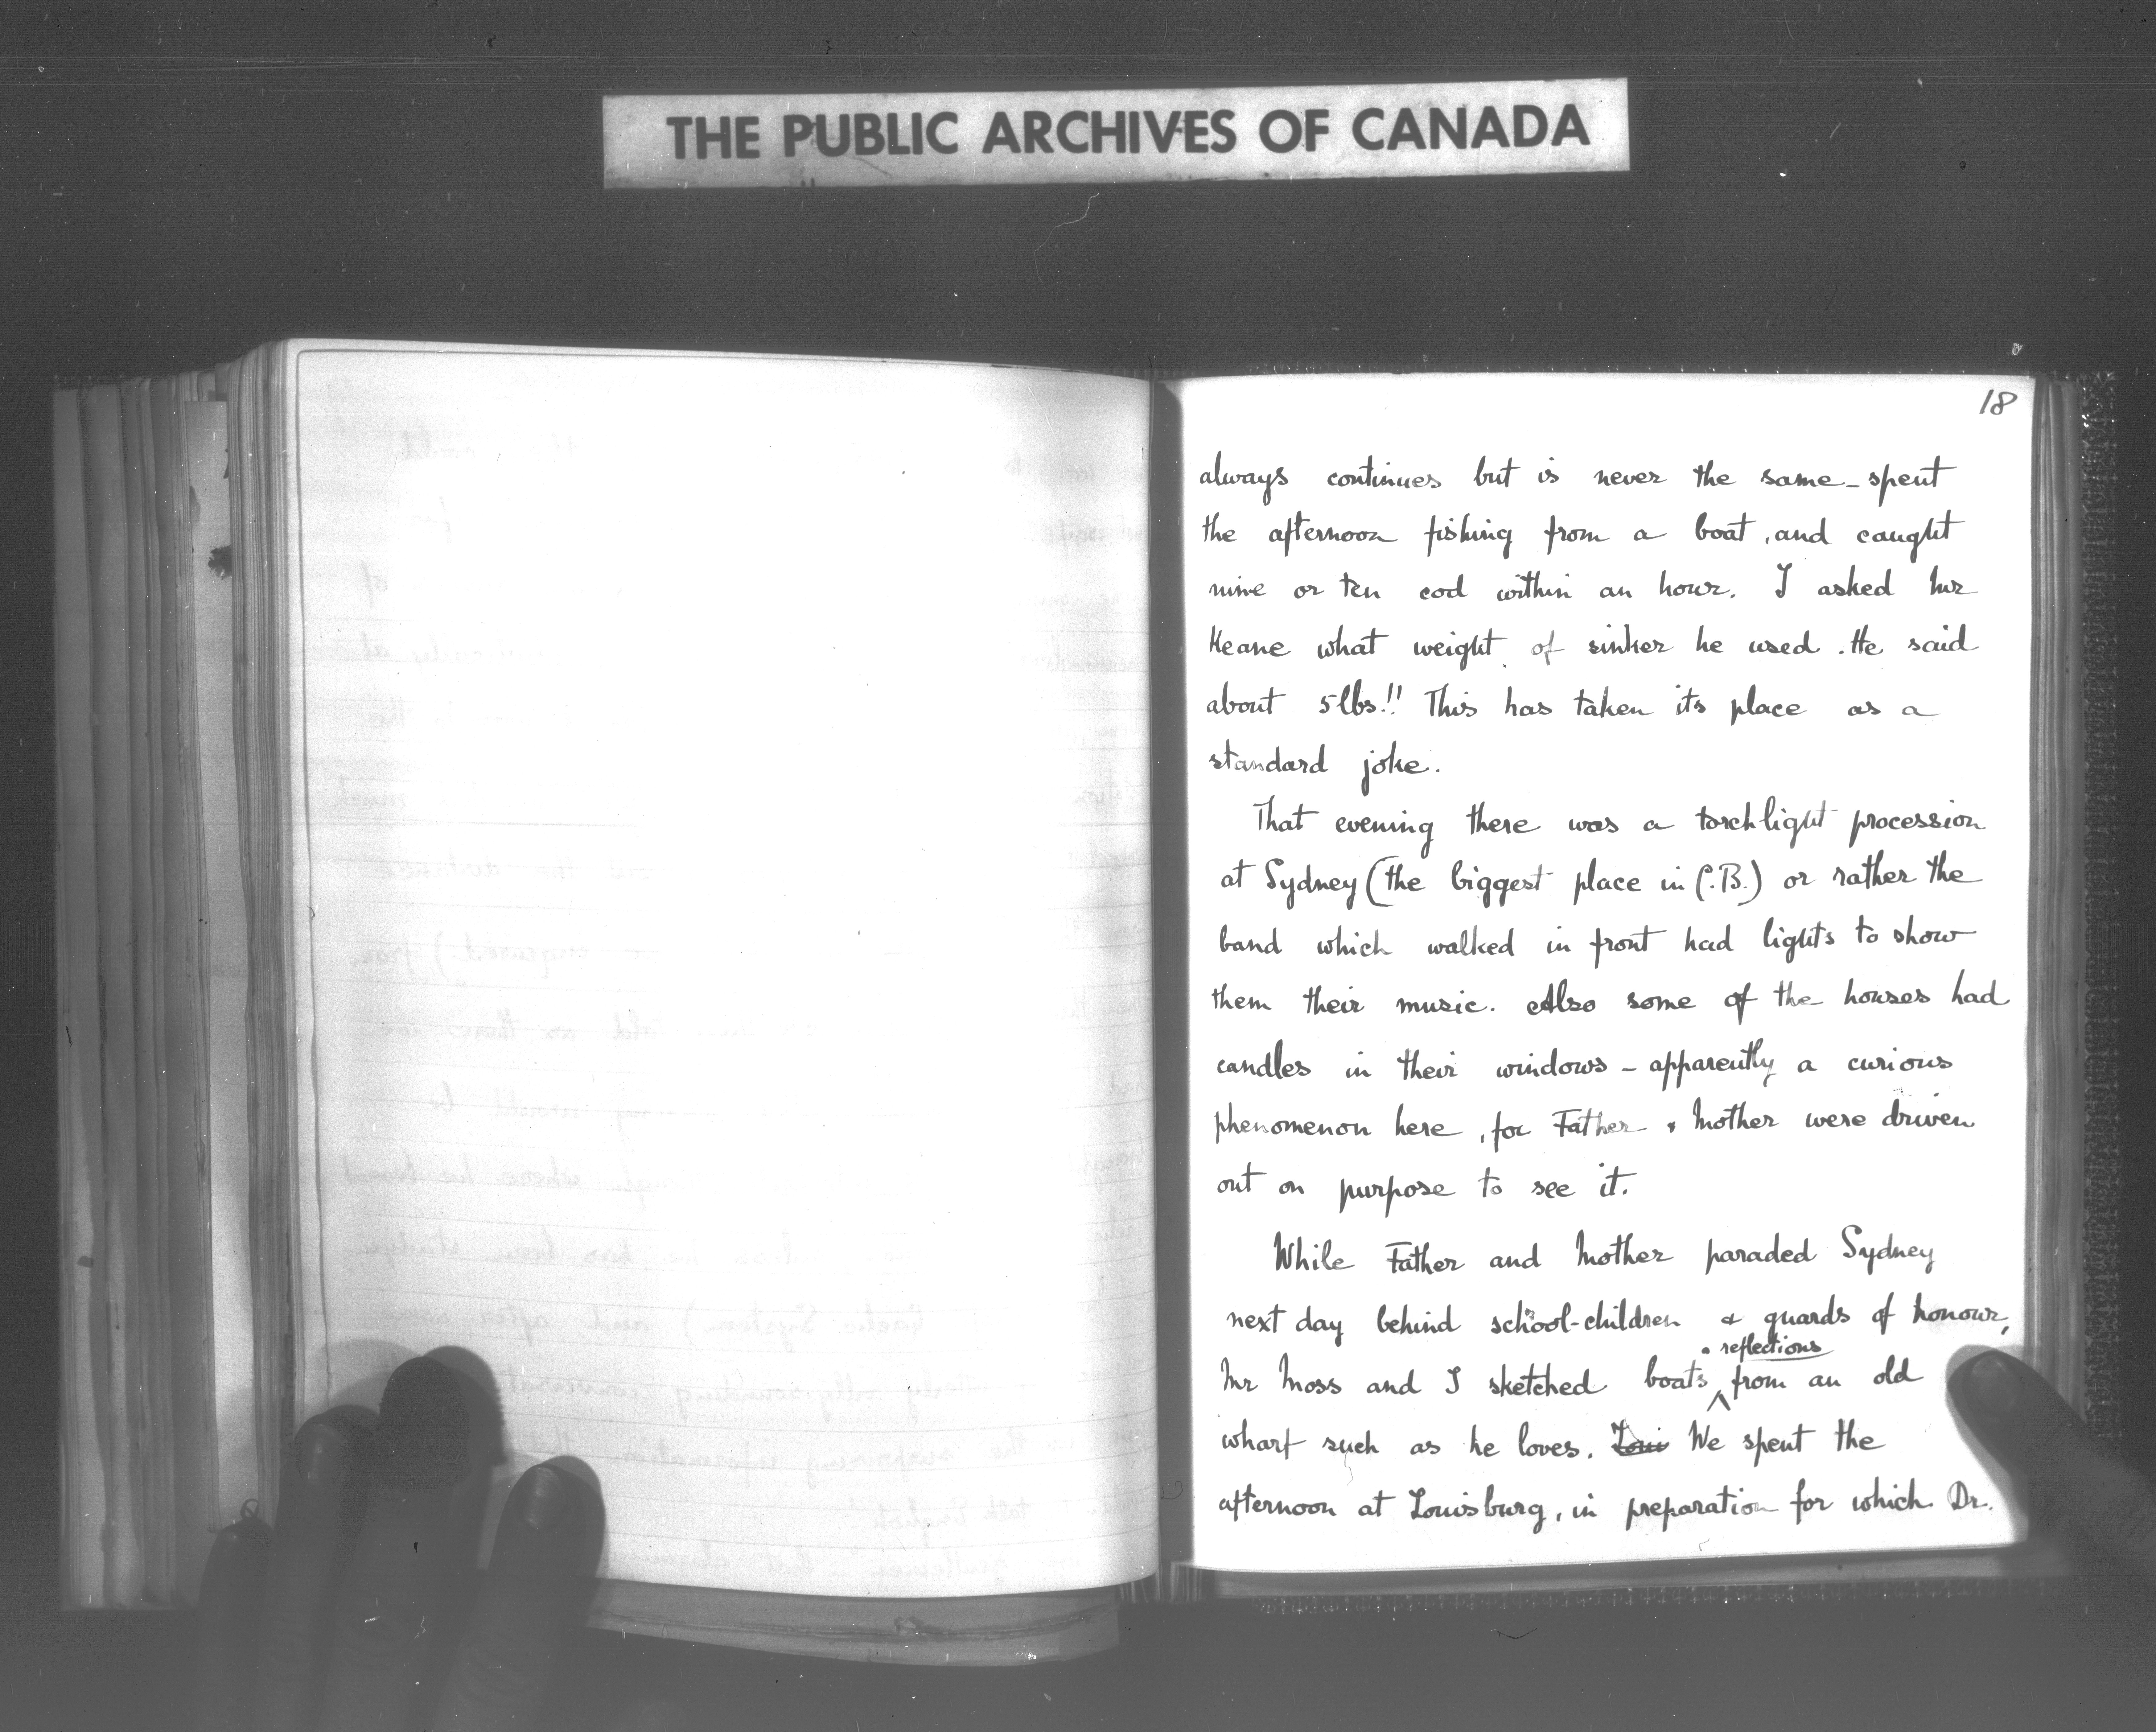 THE PUBLIC ARCHIVES OF CANADA
18
always continues but is never the same - spent
the afternoon fishing from a boat, and caught
nine or ten cod within an hour. I asked Mr
Keane what weight of sinker he used. He said
about 5 lbs!! This has taken its place as a
standard joke.
That evening there was a torchlight procession
at Sydney (the biggest place in C.B.) or rather the
band which walked in front had lights to show
them their music. Also some of the houses had
candles in their windows - apparently a curious
phenomenon here, for Father & Mother were driven
out on purpose to see it.
While Father and Mother paraded Sydney
next day behind school-children & guards of honour,
& reflections
Mr Moss and I sketched boats ^ from an old
wharf such as he loves. Loui We spent the
afternoon at Louisburg, in preparation for which Dr.